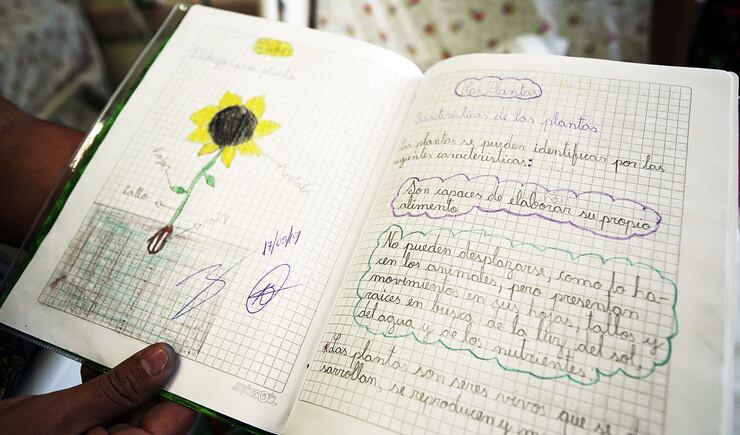 Dibujar una planta
Pétalo
tallo
17/05/17
Las Plantas
Características de las plantas
Las plantas se pueden identificar por las
siguientes características:
Son capaces de elaborar su propio
alimento
No pueden desplazarse, como lo ha-
cen los animales, pero presentan
movimientos en sus hojas, tallos y
raíces en busca de la luz del sol,
del agua y de los nutrientes,
*Las plantas son seres vivos que se de
sarrollan, se reproducen y m